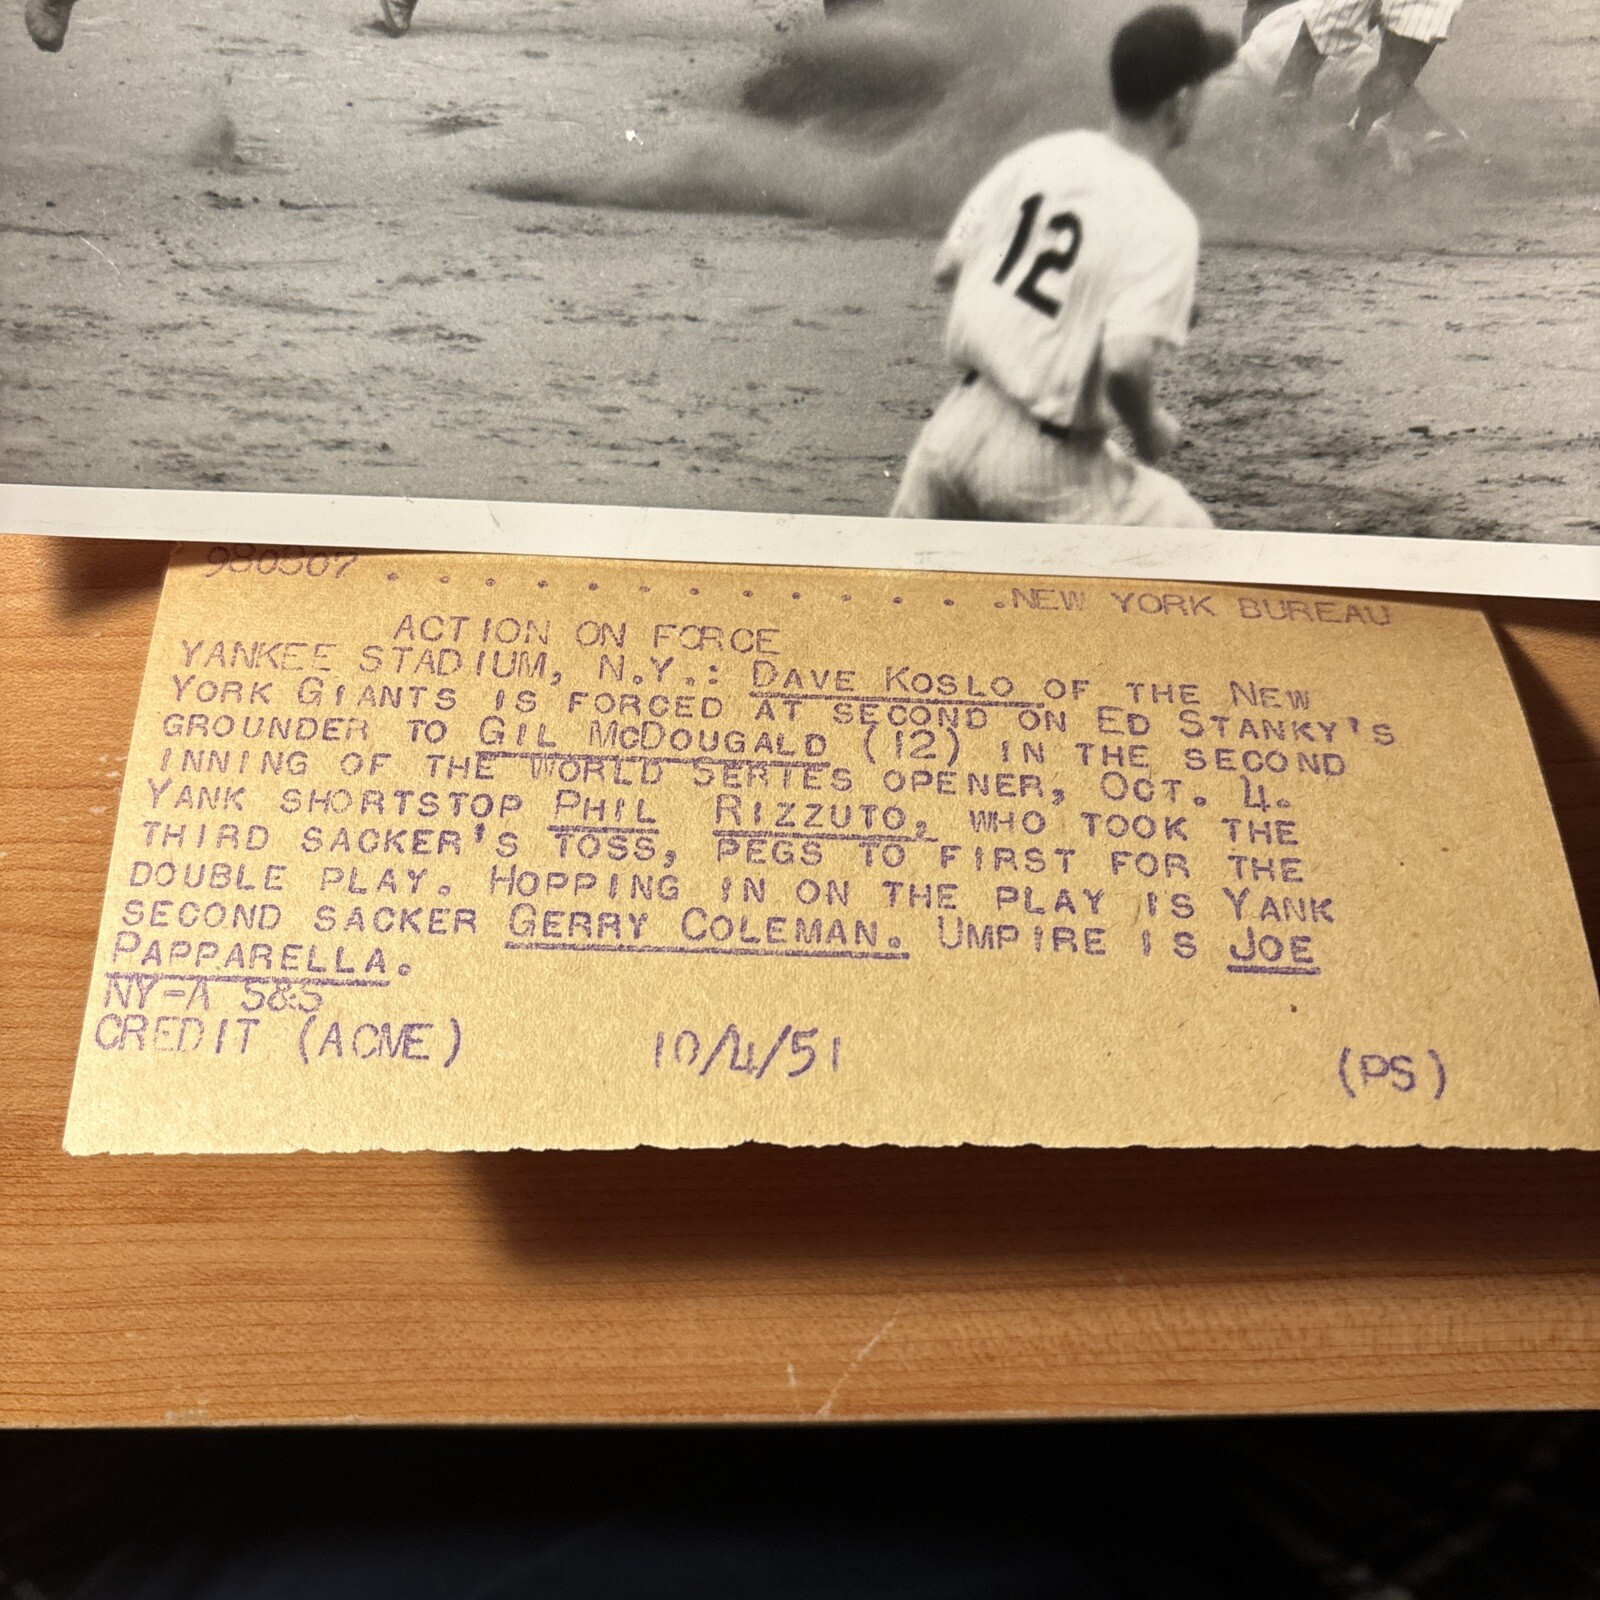 12
980807 . . . . . . . . . . . . .NEW YORK BUREAU
ACTION ON FORCE
YANKEE STADIUM, N.Y.: DAVE KOSLO OF THE NEW
YORK GIANTS IS FORCED AT SECOND ON ED STANKY'S
GROUNDER TO GIL MCDOUGALD (12) IN THE SECOND
INNING OF THE WORLD SERIES OPENER, OCT. 4.
YANK SHORTSTOP PHIL RIZZUTO, WHO TOOK THE
THIRD SACKER'S TOSS, PEGS TO FIRST FOR THE
DOUBLE PLAY. HOPPING IN ON THE PLAY IS YANK
SECOND SACKER GERRY COLEMAN. UMPIRE IS JOE
PAPPARELLA.
NY-A 5&5
CREDIT (ACME) 10/4/51 (PS)